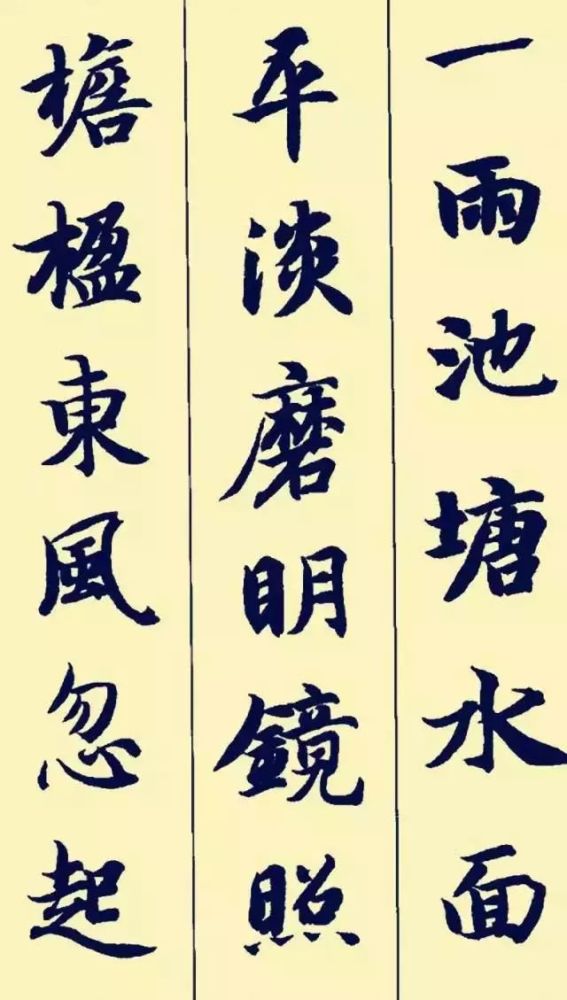 一雨池塘水面
平淡磨明鏡照
檐楹東風忽起